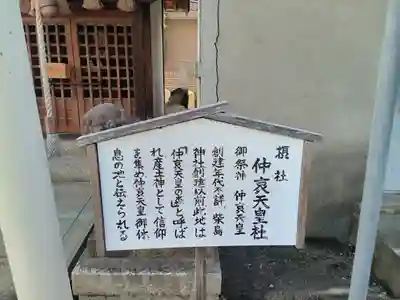 摂社
仲哀天皇社
御祭神 仲哀天皇
創建年代不詳。柴島
神社創建以前此地は
「仲哀天皇の森」と呼ば
れ産土神として信仰
を集め仲哀天皇御休
息の地と伝えられる